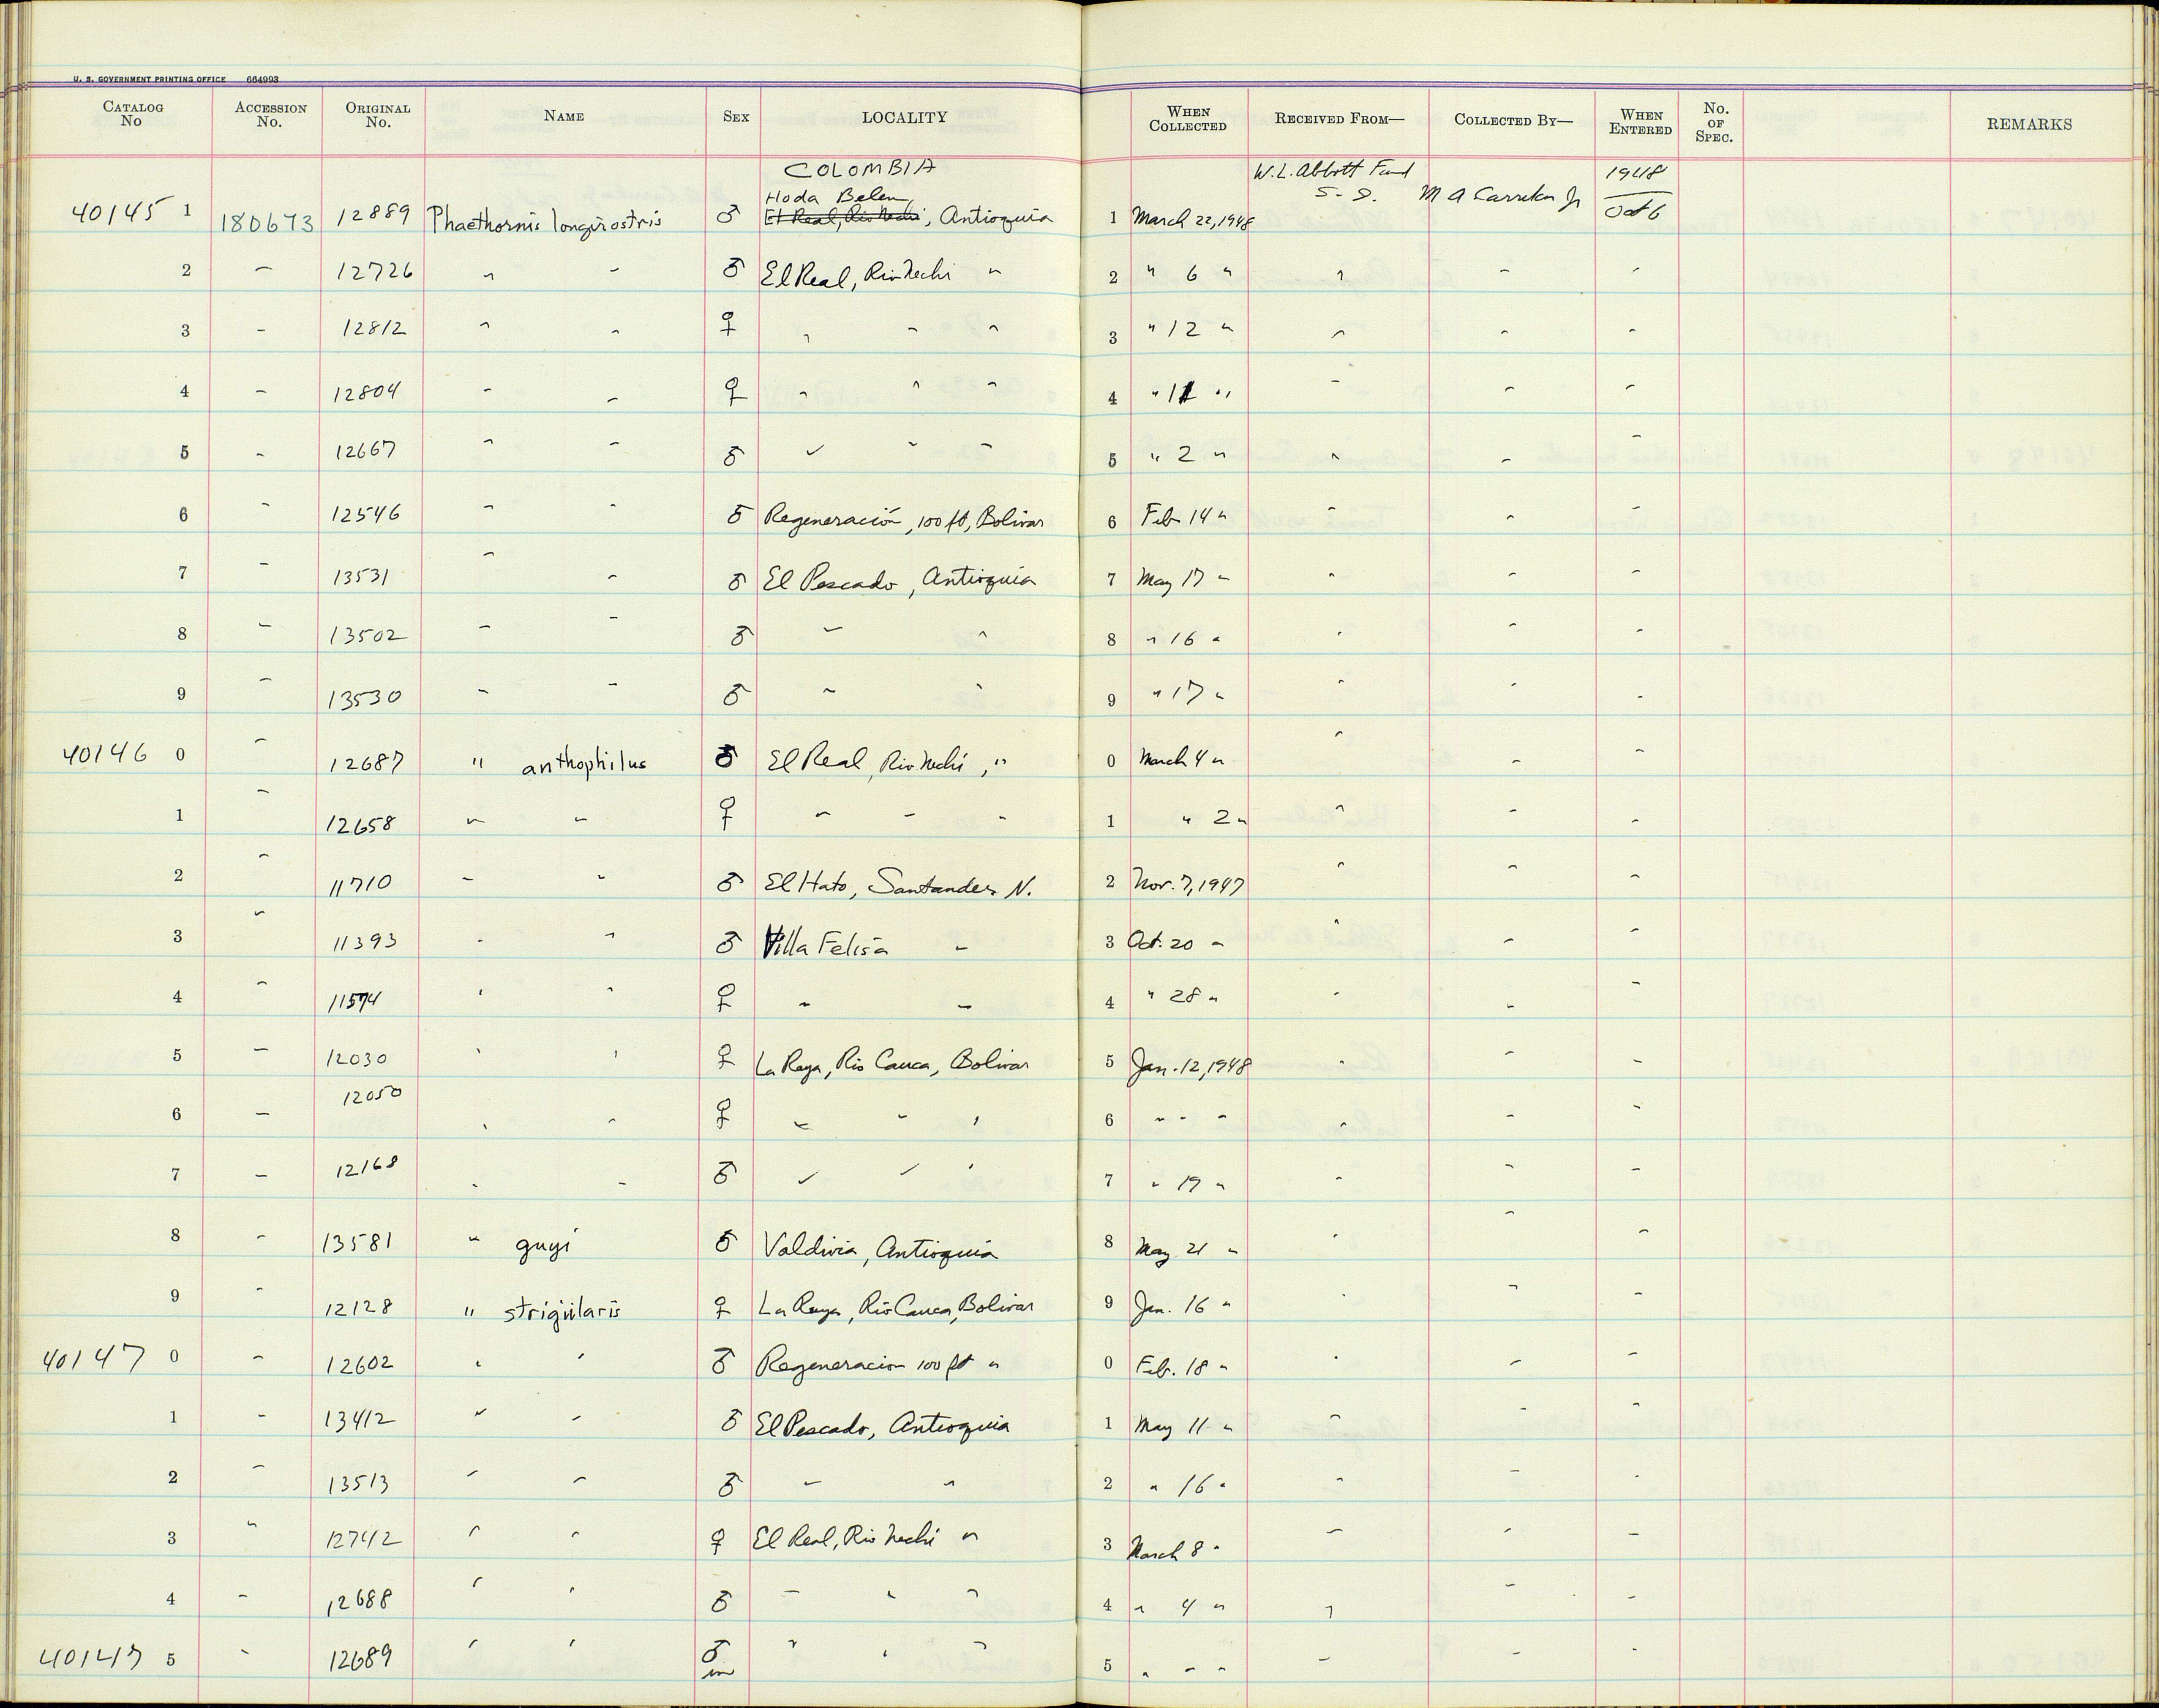 U. S. GOVERNMENT PRINTING OFFICE 664993
CATALOG No ACCESSION No. ORIGINAL No. NAME SEX LOCALITY WHEN COLLECTED RECEIVED FROM— COLLECTED BY— WHEN ENTERED No. OF SPEC. REMARKS
COLOMBIA W. L. Abbott Fund 1948
Hoda Belen, S. I.
40145 1 180673 12889 Phaethornis longirostris ♂ El Real, Rio Nechi, Antioquia 1 March 22, 1948 M A Carriker Jr Oct 6
2 " 12726 " " ♂ El Real, Rio Nechi " 2 " 6 " " " "
3 " 12812 " " ♀ " " " 3 " 12 " " " "
4 " 12804 " " ♀ " " " 4 " 11 " " " "
5 " 12667 " " ♂ " " " 5 " 2 " " " "
6 " 12546 " " ♂ Regeneración, 100 ft, Bolivar 6 Feb 14 " " " "
7 " 13531 " " ♂ El Pescado, Antioquia 7 May 17 " " " "
8 " 13502 " " ♂ " " 8 " 16 " " " "
9 " 13530 " " ♂ " " 9 " 17 " " " "
40146 0 " 12687 " anthophilus ♂ El Real, Rio Nechi, " 0 March 4 " " " "
1 " 12658 " " ♀ " " " 1 " 2 " " " "
2 " 11710 " " ♂ El Hato, Santander N. 2 Nov. 7, 1947 " " "
3 " 11393 " " ♂ Villa Felisa " 3 Oct. 20 " " " "
4 " 11574 " " ♀ " " 4 " 28 " " " "
5 " 12030 " " ♀ La Raya, Rio Cauca, Bolivar 5 Jan. 12, 1948 " " "
6 " 12050 " " ♀ " " " 6 " " " " " "
7 " 12168 " " ♂ " " " 7 " 19 " " " "
8 " 13581 " guyi ♂ Valdivia, Antioquia 8 May 21 " " " "
9 " 12128 " strigularis ♀ La Raya, Rio Cauca, Bolivar 9 Jan. 16 " " " "
40147 0 " 12602 " " ♂ Regeneracion 100 ft " 0 Feb. 18 " " " "
1 " 13412 " " ♂ El Pescado, Antioquia 1 May 11 " " " "
2 " 13513 " " ♂ " " 2 " 16 " " " "
3 " 12742 " " ♀ El Real, Rio Nechi " 3 March 8 " " " "
4 " 12688 " " ♂ " " " 4 " 4 " " " "
40147 5 " 12689 " " ♂ im " " " 5 " " " " " "